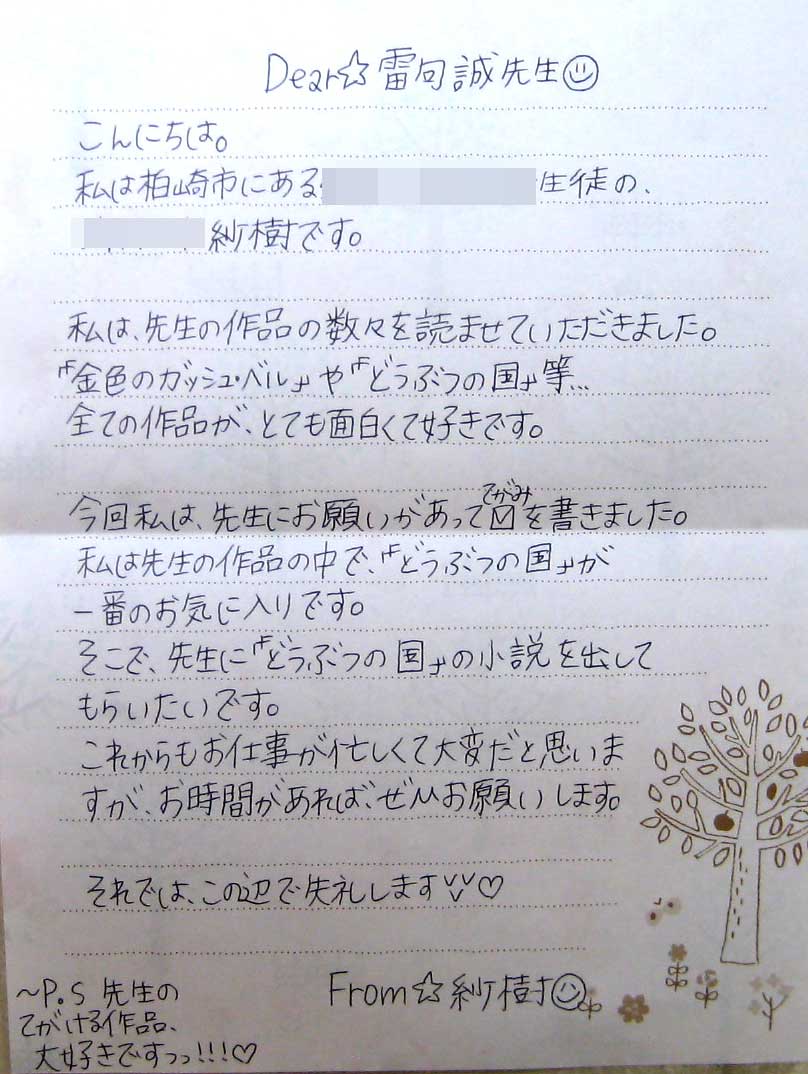 Dear☆雷句誠先生☺
こんにちは。
私は柏崎市にある生徒の、
紗樹です。
私は、先生の作品の数々を読ませていただきました。
『金色のガッシュ・ベル』や『どうぶつの国』等...
全ての作品が、とても面白くて好きです。
てがみ
今回私は、先生にお願いがあって✉を書きました。
私は先生の作品の中で、『どうぶつの国』が
一番のお気に入りです。
そこで、先生に『どうぶつの国』の小説を出して
もらいたいです。
これからもお仕事が忙しくて大変だと思いま
すが、お時間があれば、ぜひお願いします。
それでは、この辺で失礼します♡
From☆紗樹☺
～P.S 先生の
てがける作品、
大好きですっっ!!!♡